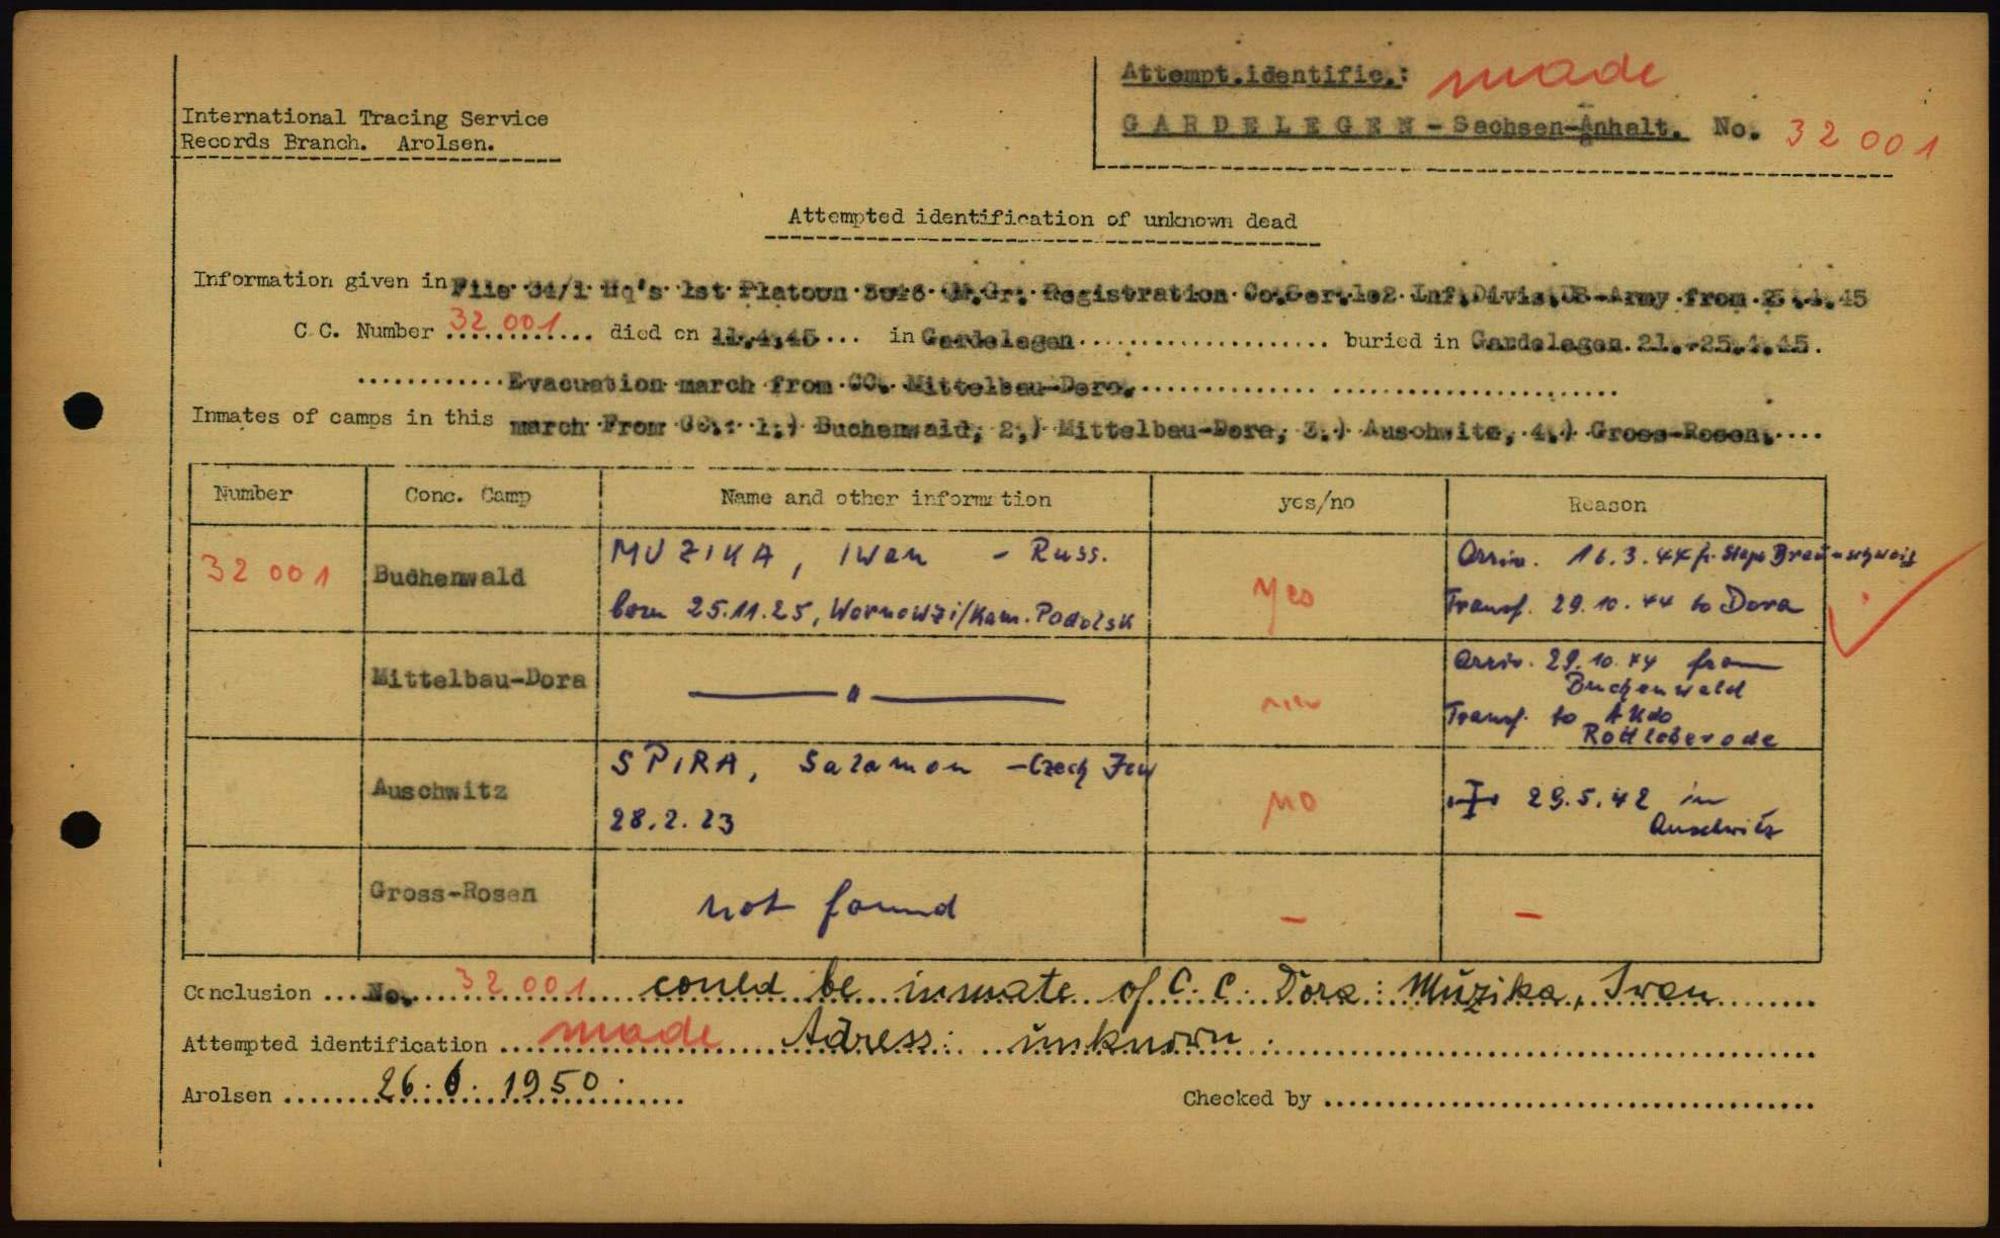 Attempt.identific.: made
International Tracing Service
Records Branch. Arolsen.
GARDELEGEN - Sachsen-Anhalt. No. 32 001
Attempted identification of unknown dead
Information given in File 34/1 Hq's 1st Platoon Qm.Gr. Registration Co. Inf.Divis.US-Army from .4.45
C.C. Number 32 001 died on 11.4.45... in Gardelegen buried in Gardelegen.21.-25.4.45.
Evacuation march from CC. Mittelbau-Dora.
Inmates of camps in this march From CC.: 1.) Buchenwald, 2.) Mittelbau-Dora, 3.) Auschwitz, 4.) Gross-Rosen.
Number Conc. Camp Name and other information yes/no Reason
32 001 Buchenwald MUZIKA, Iwan - Russ. yes Arriv. 16.3.44 fr. Stapo Braunschweig
born 25.11.25, Wornowzi/Kam. Podolsk Transf. 29.10.44 to Dora
Mittelbau-Dora — " — Arriv. 29.10.44 from
Buchenwald
Transf. to AKdo
Rottleberode
Auschwitz SPIRA, Salamon - Czech Jew no 29.5.42 in
28.2.23 Auschwitz
Gross-Rosen not found - -
Conclusion No. 32 001 could be inmate of C.C. Dora: Muzika, Iwan
Attempted identification made Adress: unknown.
Arolsen 26.6.1950. Checked by